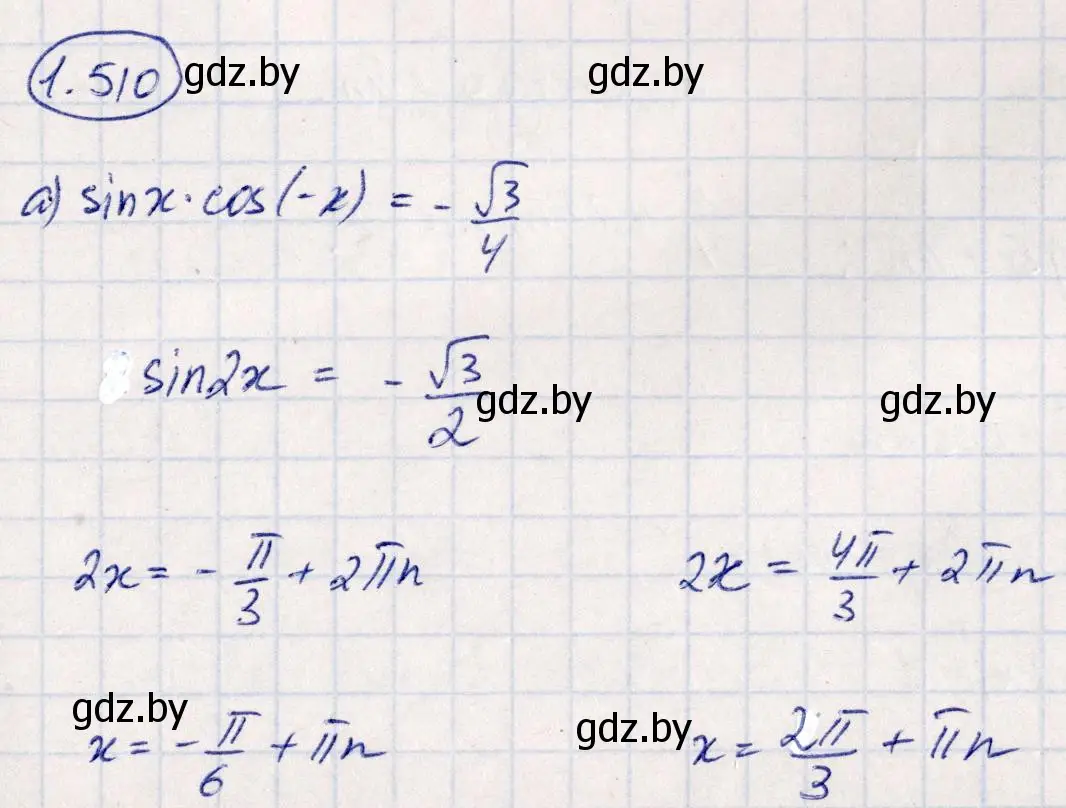 1.510 gdz.by gdz.by
а) sinx·cos(-x) = - √3/4
sin2x = - √3/2 gdz.by gdz.by
2x = - π/3 + 2πn 2x = 4π/3 + 2πn
gdz.by gdz.by
x = - π/6 + πn x = 2π/3 + πn